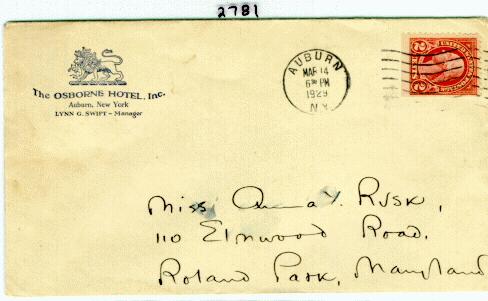 2781
The OSBORNE HOTEL, Inc.
Auburn, New York
LYNN G. SWIFT - Manager
AUBURN
MAR 14
6 PM
1929
N.Y.
Miss Anna Y. RUSK,
110 Elmwood Road.
Roland Park, Maryland